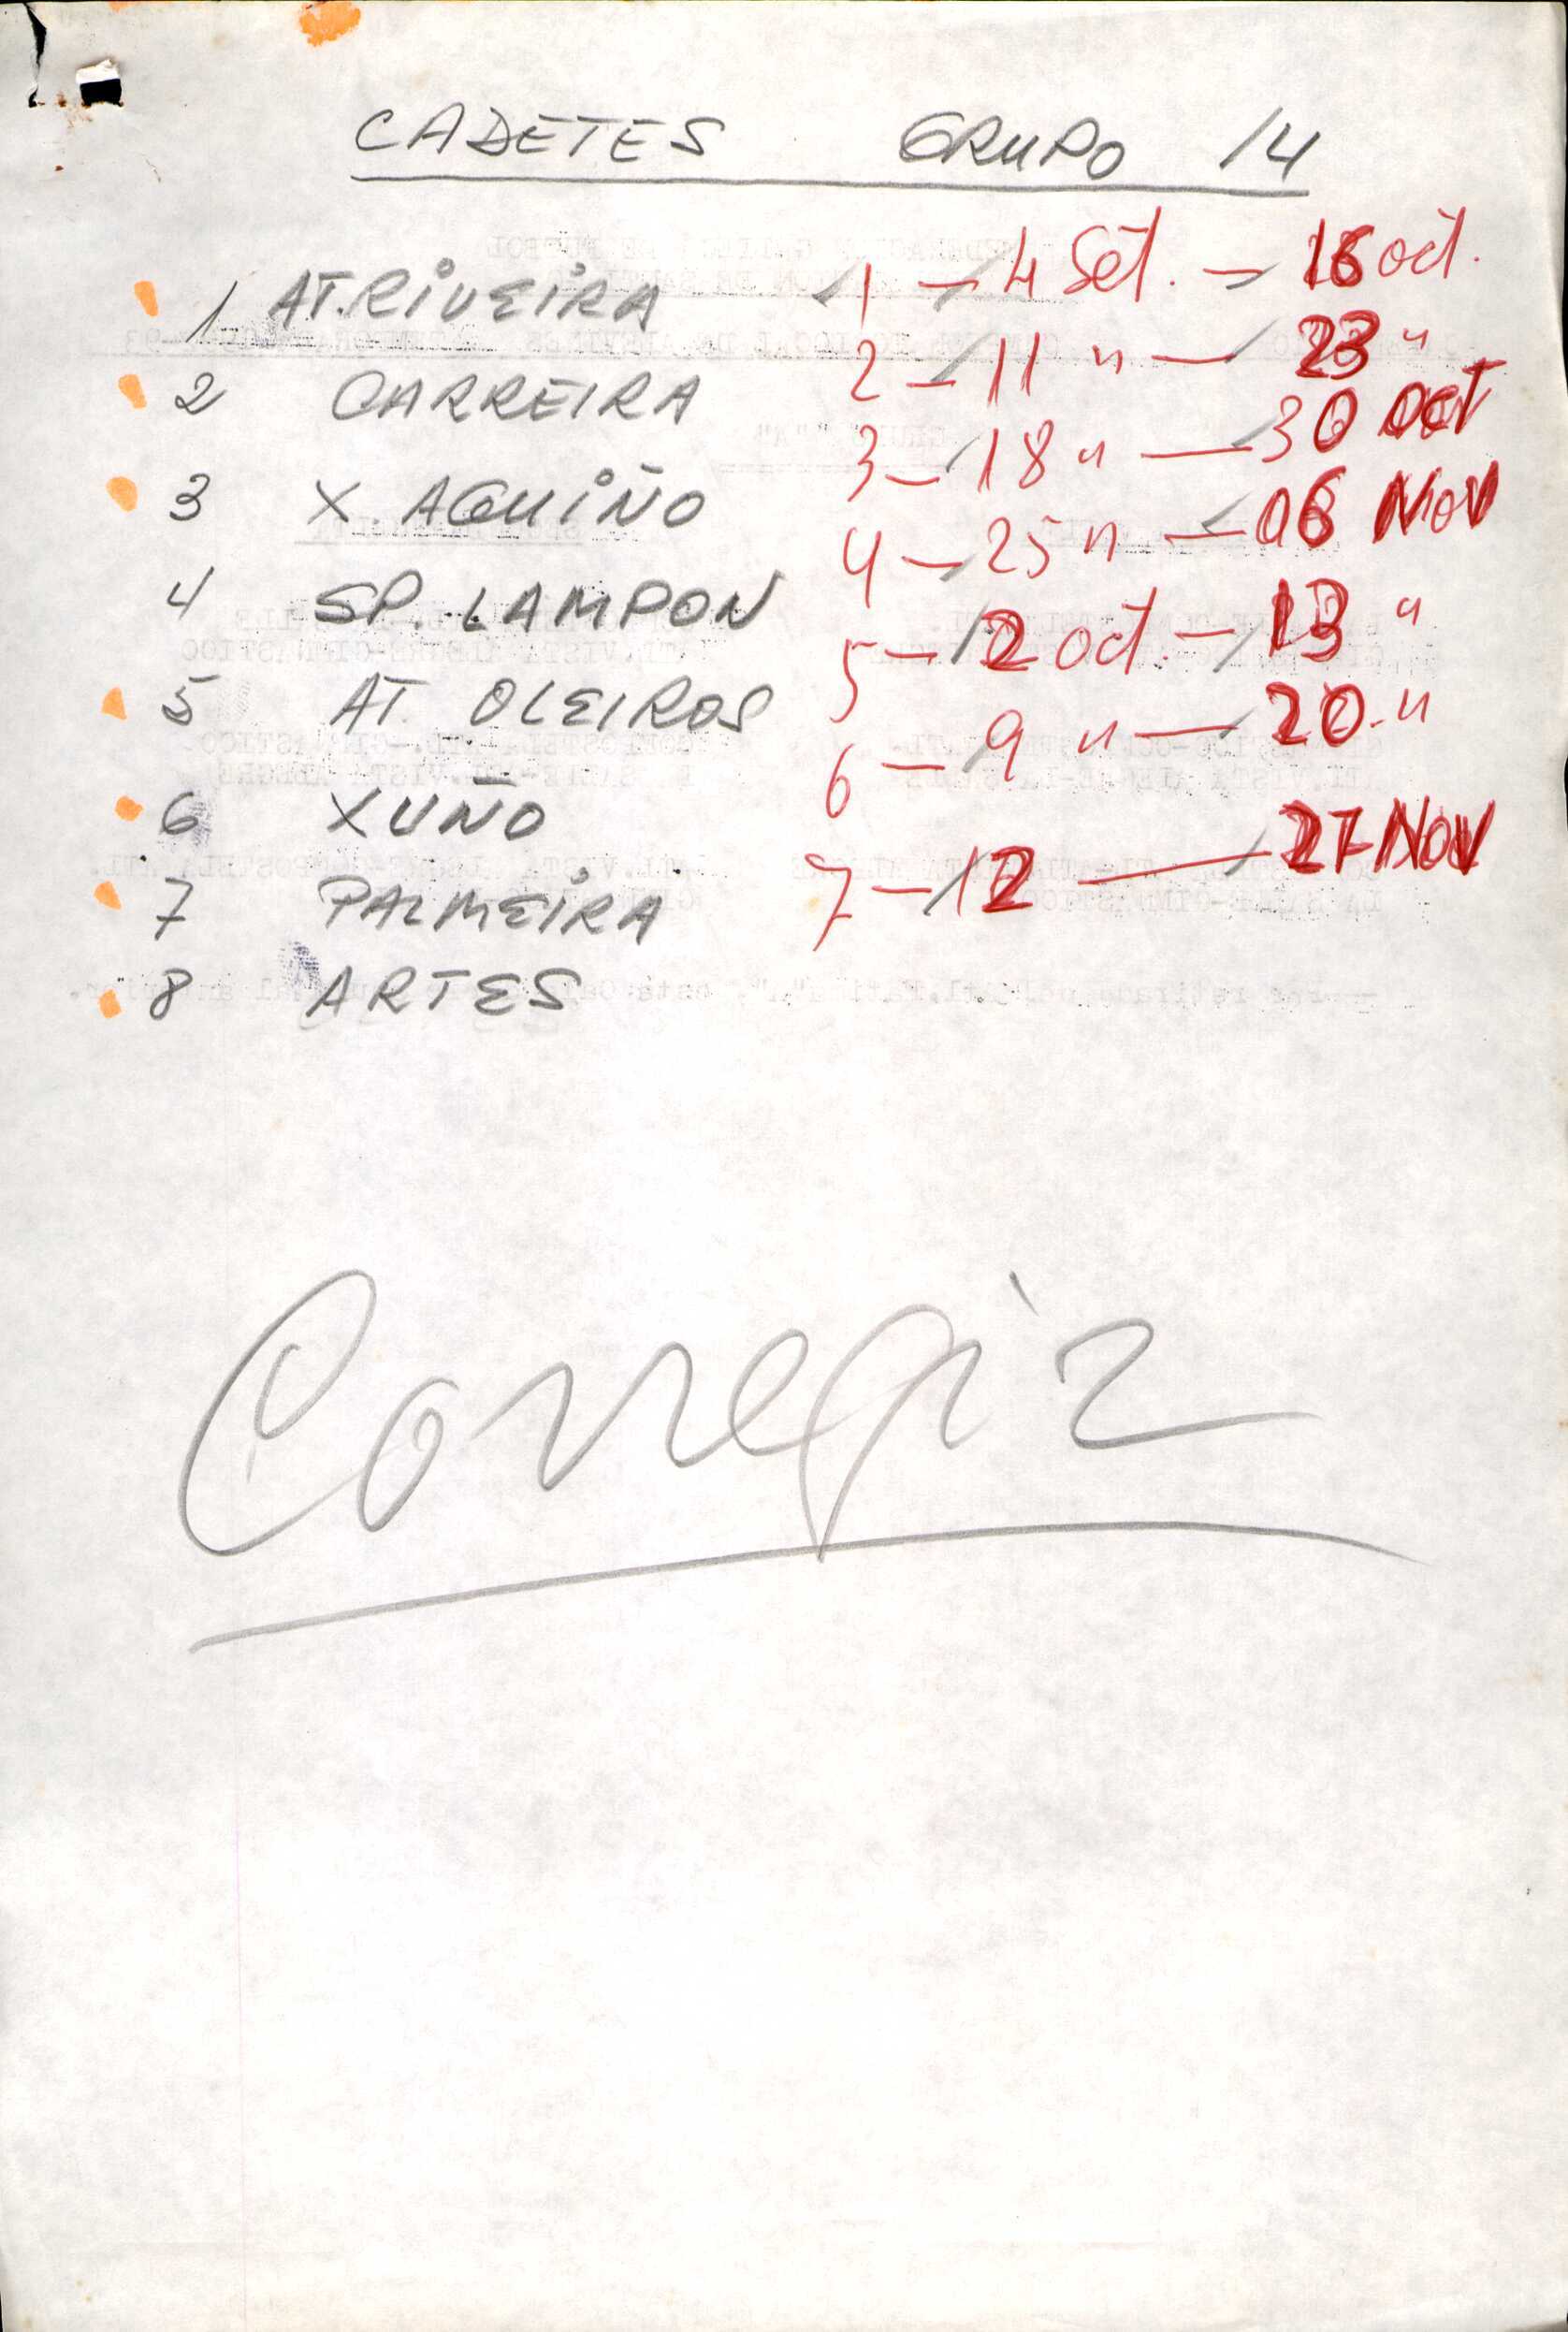 CADETES GRUPO 14
1 AT. RIVEIRA 1 - 4 Set. - 16 oct.
2 CARREIRA 2 - 11 " - 23 "
3 X. AGUIÑO 3 - 18 " - 30 OCT
4 SP. LAMPON 4 - 25 " - 06 NOV
5 AT. OLEIROS 5 - 2 oct. - 13 "
6 XUÑO 6 - 9 " - 20 "
7 PALMEIRA 7 - 12 - 27 NOV
8 ARTES
Corregir